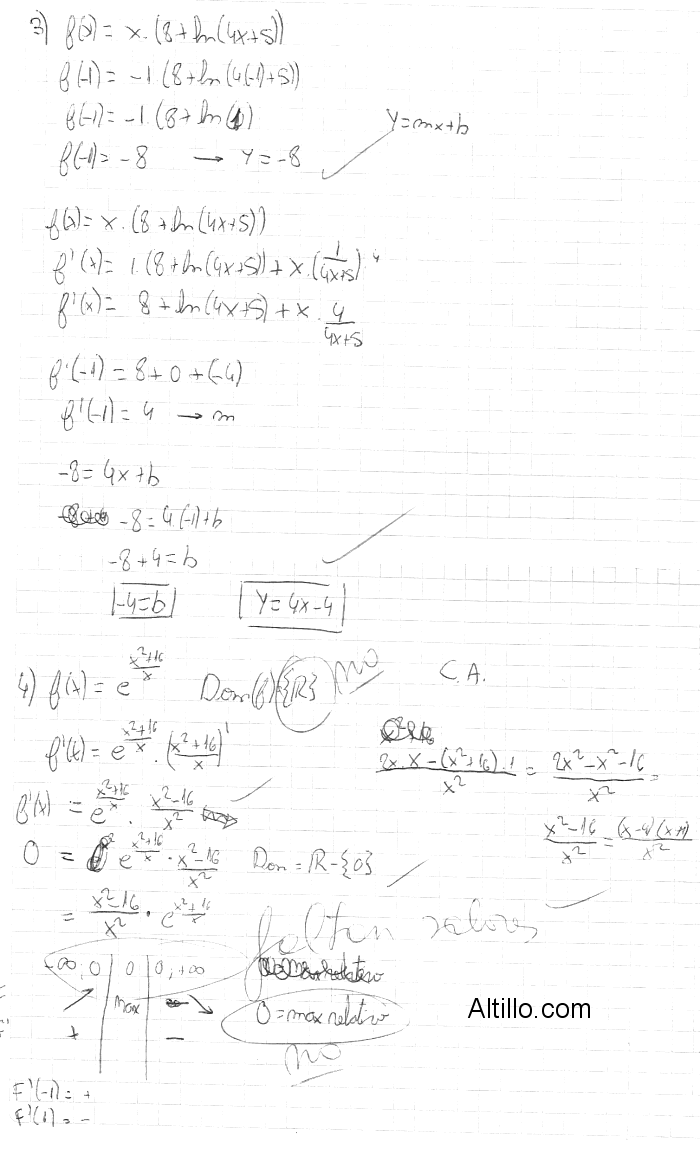 3) f(x) = x·(8+ln(4x+5))
f(-1) = -1·(8+ln(4(-1)+5))
f(-1) = -1·(8+ln(1))
Y=mx+b
f(-1) = -8 → Y=-8
f(x) = x·(8+ln(4x+5))
f'(x) = 1·(8+ln(4x+5)) + x·(1/(4x+5))·4
f'(x) = 8+ln(4x+5) + x·4/(4x+5)
f'(-1) = 8+0+(-4)
f'(-1) = 4 → m
-8 = 4x+b
-8 = 4·(-1)+b
-8+4 = b
-4=b
Y=4x-4
4) f(x) = e^((x²+16)/x) Dom(f)={R} no C.A.
f'(x) = e^((x²+16)/x)·((x²+16)/x)'
(2x·x-(x²+16)·1)/x² = (2x²-x²-16)/x² =
f'(x) = e^((x²+16)/x)·(x²-16)/x²
(x²-16)/x² = (x-4)(x+4)/x²
0 = e^((x²+16)/x)·(x²-16)/x² Dom = R-{0}
= (x²-16)/x²·e^((x²+16)/x)
faltan valores
-∞;0 | 0 | 0;+∞
max
0=max relativo
+ -
no
F'(-1) = +
F'(1) = -
Altillo.com